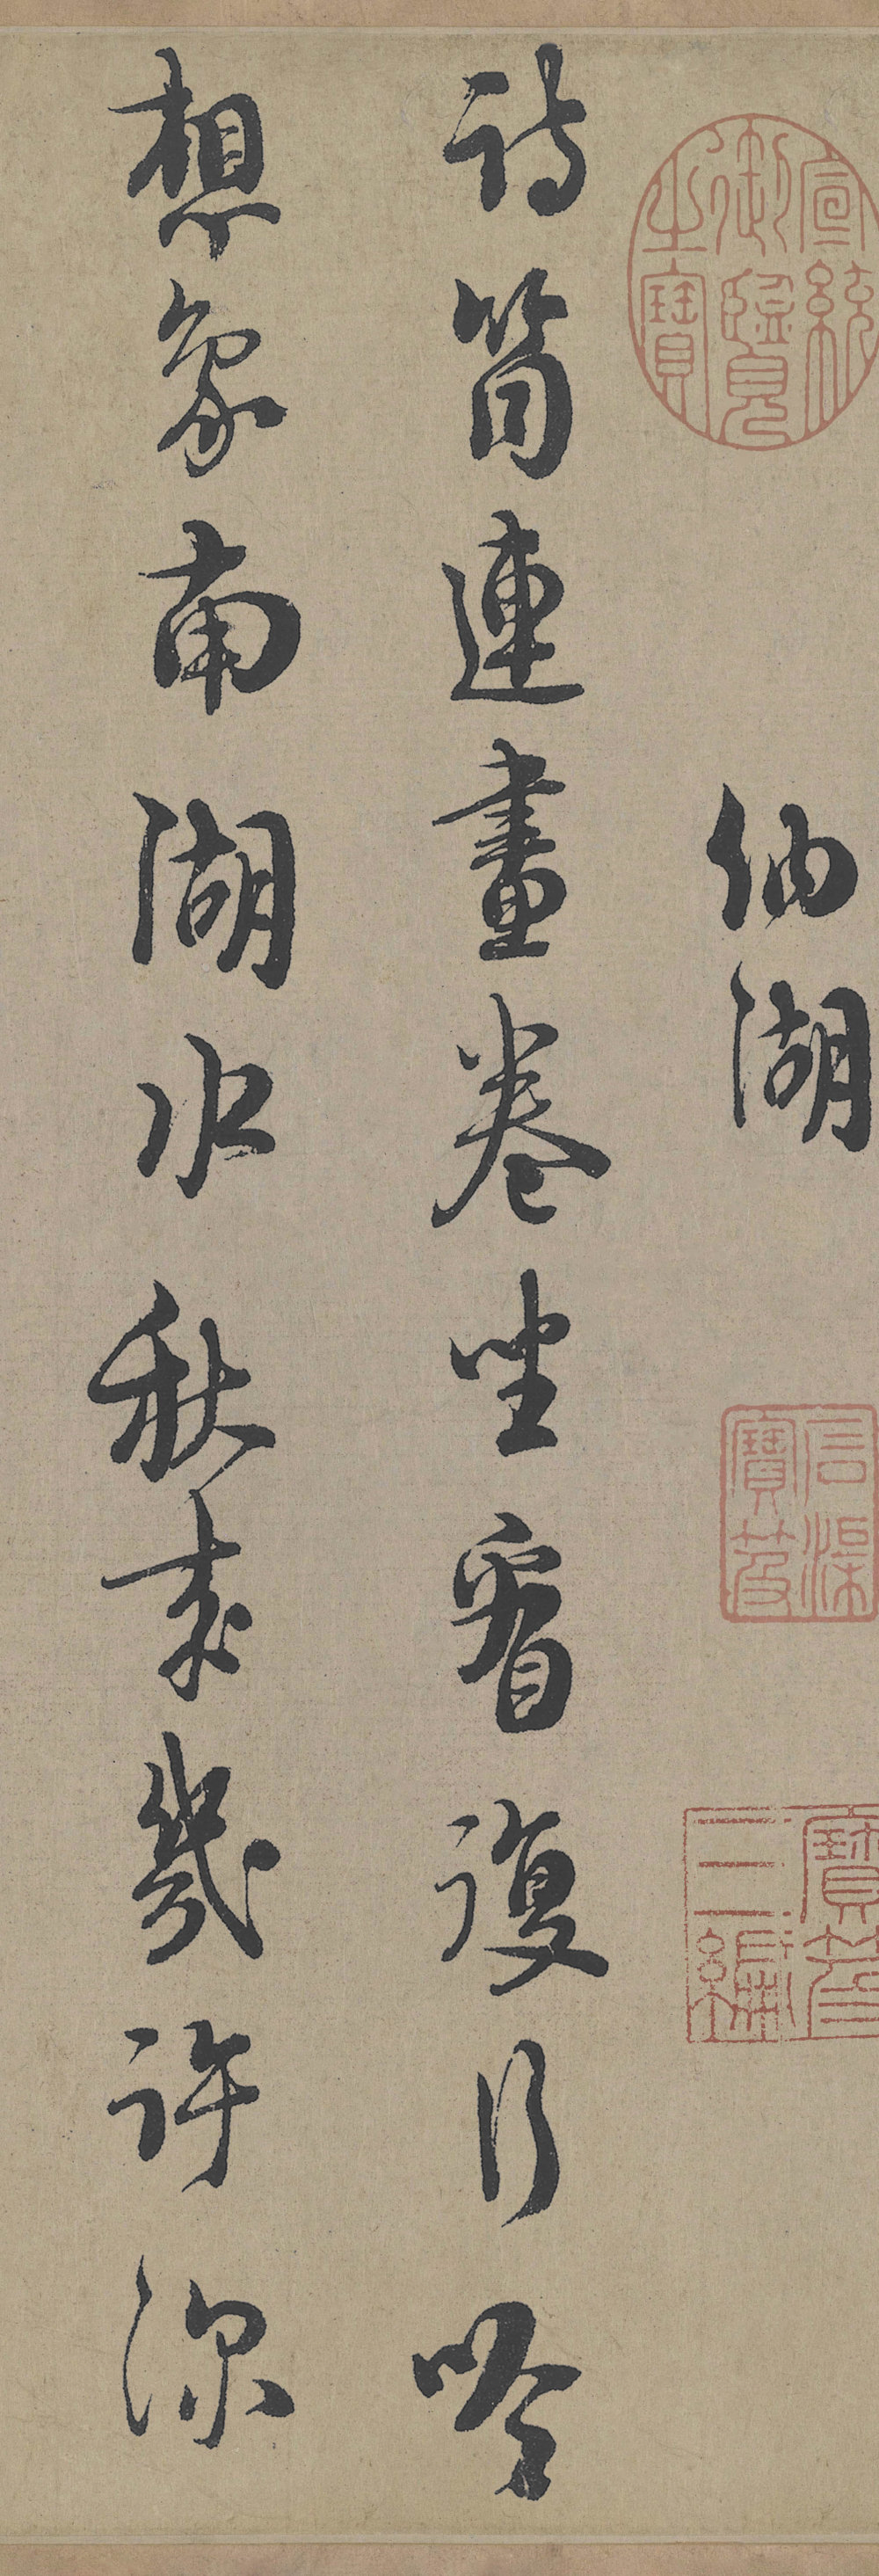 宣統御覽之寶
石渠寶笈
寶笈三編
納湖
詩筒連畫卷坐看復行吟
想象南湖水秋來幾許深